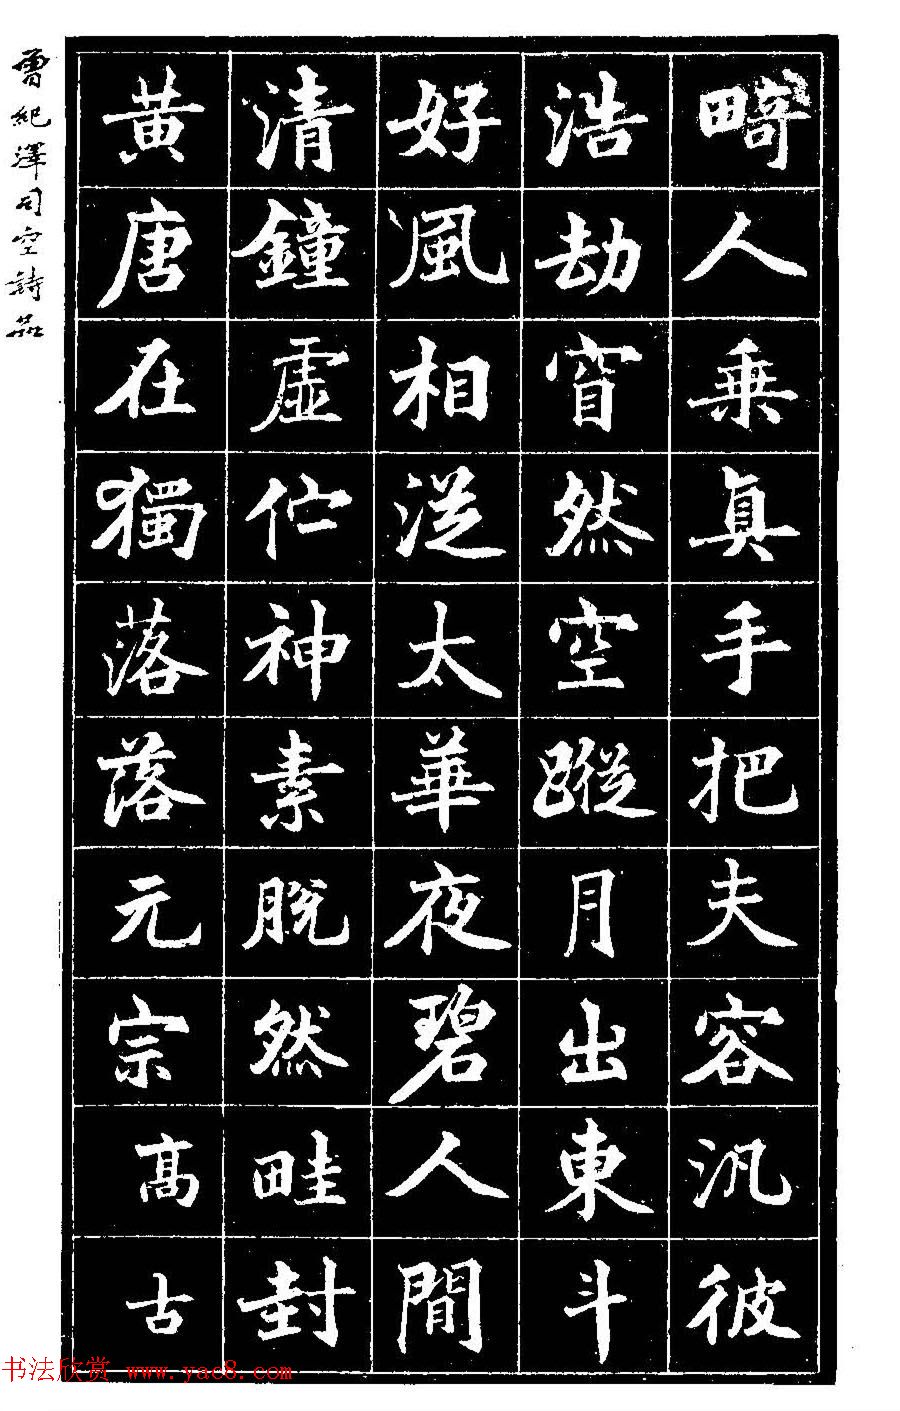 畸人乗真手把夫容汎彼
浩劫窅然空蹤月出東斗
好風相从太華夜碧人間
清鐘虛佇神素脫然畦封
黃唐在獨落落元宗
高古
曾紀澤司空詩品
书法欣赏 www.yac8.com